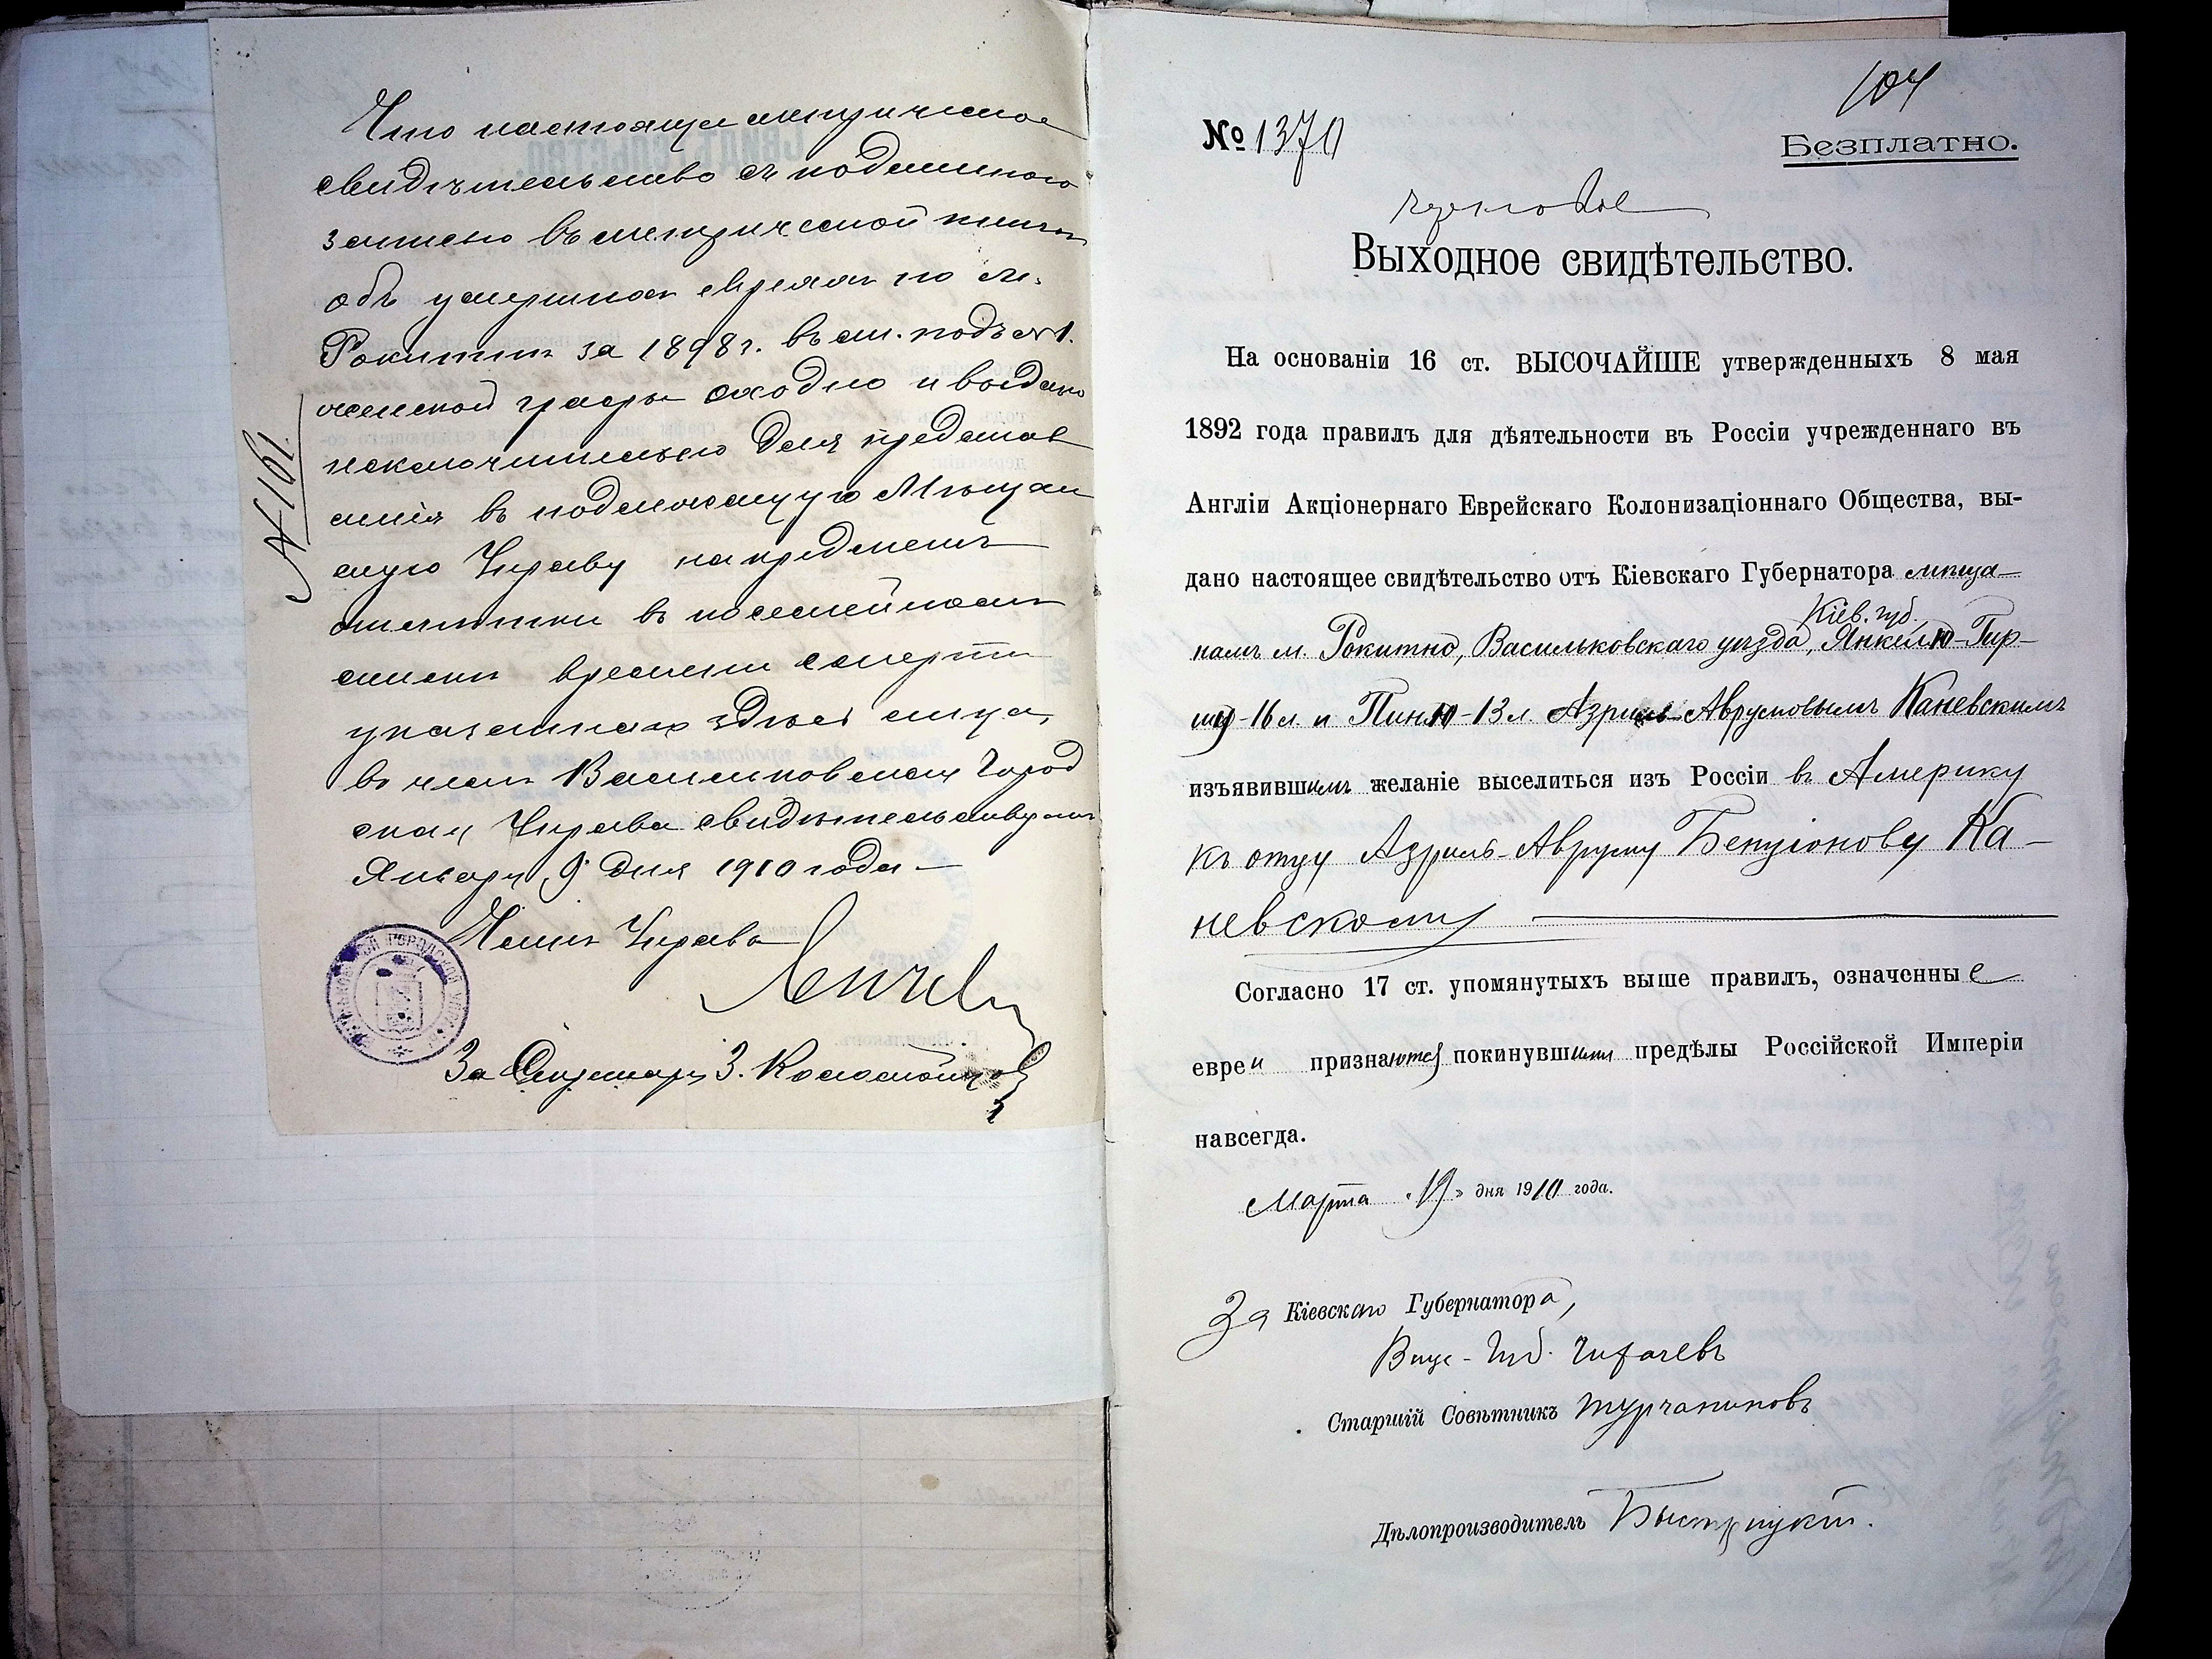 Что настоящее метрическое
свидѣтельство съ подлинною
записью въ метрической книгѣ
объ умершихъ евреяхъ по м.
Рокитнѣ за 1898 г. въ ст. подъ №1.
женской графы сходно и выдано
исключительно для представ
ленія въ подлежащую Мѣщан
скую Управу на предметъ
отмѣтки въ посемейномъ
спискѣ времени смерти
указаннаго здѣсь лица,
въ чемъ Васильковская Город
ская Управа свидѣтельствуетъ
Января 9 дня 1910 года
Членъ Управы
За Секретаря З.
№ 161.
ГОРОДСКОЙ
104
№ 1370
Безплатно.
Выходное свидѣтельство.
На основаніи 16 ст. ВЫСОЧАЙШЕ утвержденныхъ 8 мая
1892 года правилъ для дѣятельности въ Россіи учрежденнаго въ
Англіи Акціонернаго Еврейскаго Колонизаціоннаго Общества, вы-
дано настоящее свидѣтельство отъ Кіевскаго Губернатора мѣща-
Кіев. губ.
намъ м. Рокитно, Васильковскаго уѣзда, Янкелю-Гир-
шу-16 л. и Пиню-13 л. Азриль-Аврумовымъ Каневскимъ
изъявившимъ желаніе выселиться изъ Россіи въ Америку
къ отцу Азриль-Авруму Бенціонову Ка-
невскому
Согласно 17 ст. упомянутыхъ выше правилъ, означенные
евреи признаются покинувшими предѣлы Россійской Имперіи
навсегда.
Марта "19" дня 1910 года.
За Кіевскаго Губернатора,
Вице-Губ. Чихачевъ
Старшій Совѣтникъ Турчаниновъ
Дѣлопроизводитель Быстрицкій.